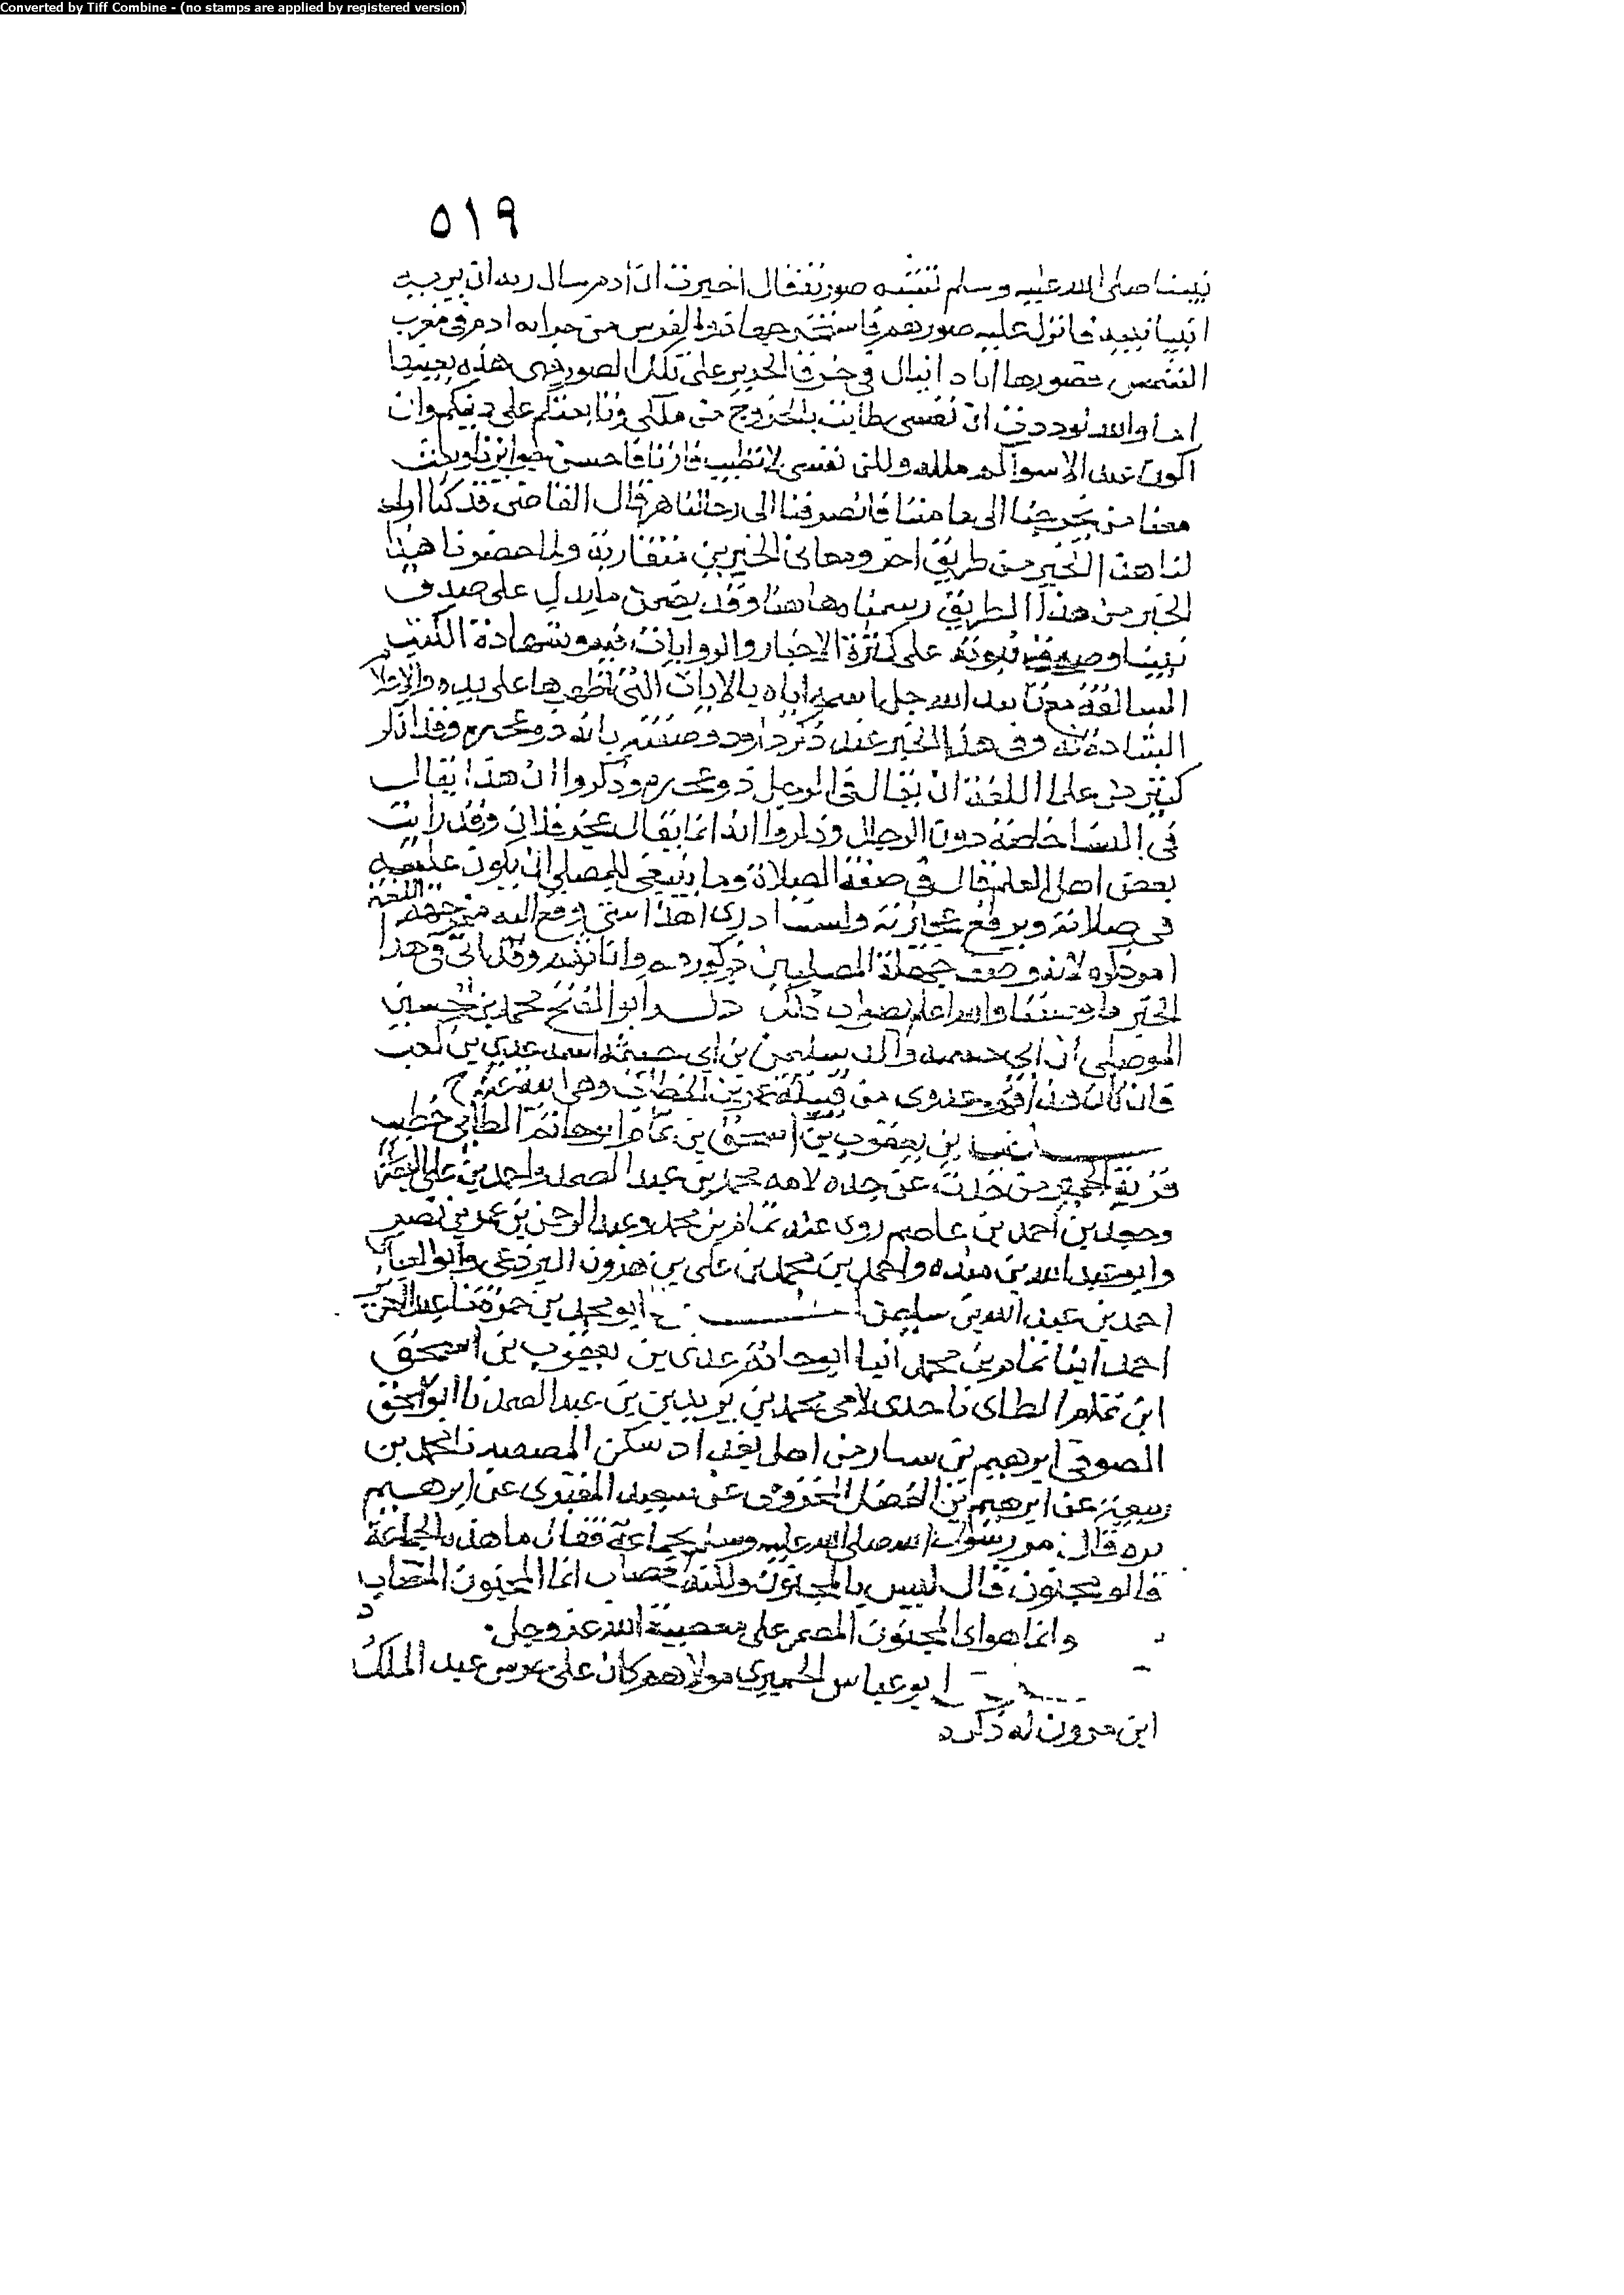 Converted by Tiff Combine - (no stamps are applied by registered version)
٥١٩
نبينا صلى الله عليه وسلم تشبه صورته فقال اخبرت ان ادم سال ربه ان يريه
انبيا بنيه فانزل عليه صورهم فاستخرجها ذو القرنين من خزانه ادم في مغرب
الشمس فصورها لنا دانيال في خرق الحرير على تلك الصور فهي هذه بعينها
اما والله لوددت ان نفسي طابت بالخروج من ملكي وتابعتكم على دينكم وان
اكون عبدا لاسواكم ملكه ولكن نفسي لا تطيب فاجازنا فاحسن جوايزنا وبعث
معنا من يخرجنا الى مامننا فانصرفنا الى رحالنا قال القاضي قد كنا
لنا هذا الخبر من طريق اخر ومعاني الخبرين متقاربة ولما حضرنا هذا
الخبر من هذا الطريق رسمناه هاهنا وقد يضمن ما يدل على صدق
نبينا وصحة نبوته على كثرة الاخبار والروايات فيه وشهادة الكتب
السالفة مع تاييد الله جل اسمه اياه بالايات التي اظهرها على يديه
وفي هذا الخبر عند ذكر داود وصفته بانه ذو عجيزة وقد انكر
كثير من علما اللغة ان يقال في الرجل ذو عجيزة وذكروا ان هذا يقال
في النسا خاصة دون الرجال وذكروا انه انما يقال عجز فلان وقد رايت
بعض اهل العلم قال في صفة الصلاة وما ينبغي للمصلي ان يكون عليه
في صلاته ويرفع عجيزته ولست ادري اهذا شي وقع اليه من جهة اللغة
ام ذكره لانه وصف جملة المصلين ذكورهم واناثهم وقد اتى في هذا
الخبر ما وصفنا والله اعلم بصواب ذلك ابوا الفتح محمد بن الحسين
الموصلي ان ابي حثمه والد سليمن بن ابي حثمة اسمه عدي بن كعب
فان كان هذا فهو عدوي من قبيلة عمر بن الخطاب
بن يعقوب بن اسحق بن تمام ابو حاتم الطائي خطيب
قرية حدث عن جده لامه محمد بن عبد الصمد واحمد بن علي
ومحمد بن احمد بن عاصم روى عنه تمام بن محمد وعبد الرحمن بن عمر بن نصر
وابو عبد الله بن منده واحمد بن محمد بن علي بن هرون البرذعي وابو العباس
احمد بن عبد الله بن سليمن ابو محمد بن حمزة نا عبد العزيز بن
احمد انبا تمام بن محمد انبا ابو حاتم عدي بن يعقوب بن اسحق
ابن تمام الطاي نا جدي لامي محمد بن يزيد بن عبد الصمد نا ابو اسحق
الصوفي ابرهيم بن سيار من اهل بغداد سكن المصيصة نا محمد بن
ربيعة عن ابرهيم بن الفضل المخزومي عن سعيد المقبري عن ابي هـ
يره قال مر رسول الله صلى الله عليه وسلم بجماعة فقال ما هذه الجماعة
قالو مجنون قال ليس بالمجنون ولكنه مصاب انما المجنون المصاب
وانما هو المجنون المصر على معصية الله عز وجل
ابو عياس الحميري مولاهم كان على حرس عبد الملك
ابن مرون له ذكر ه